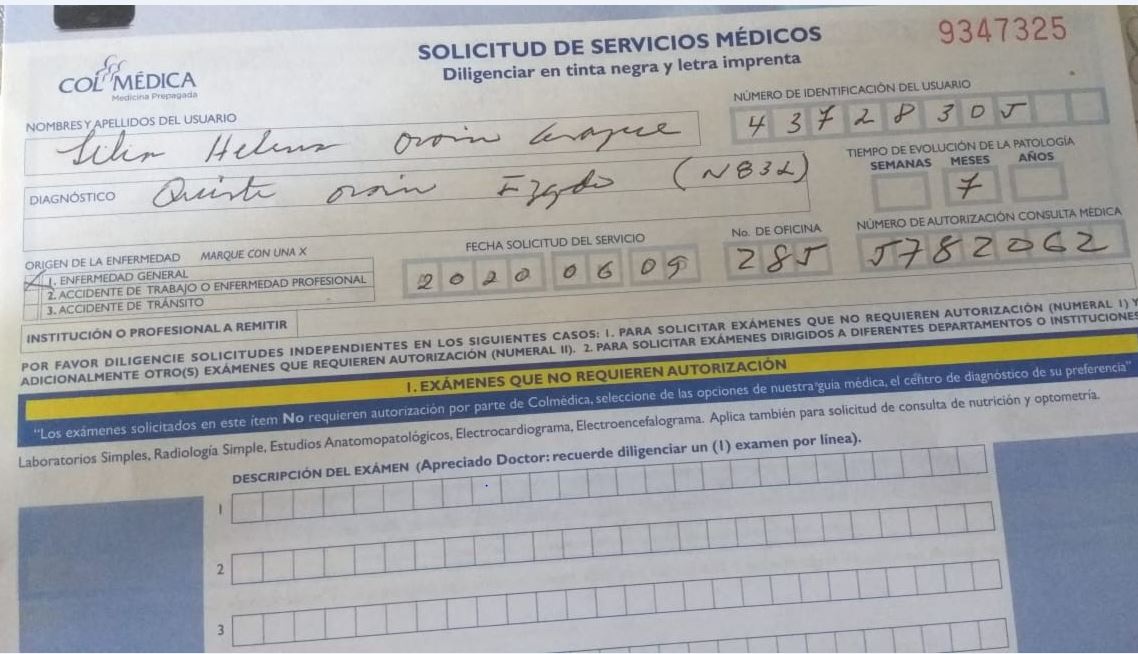 COLMÉDICA
Medicina Prepagada
SOLICITUD DE SERVICIOS MÉDICOS
Diligenciar en tinta negra y letra imprenta
9347325
NOMBRES Y APELLIDOS DEL USUARIO
Helena
NÚMERO DE IDENTIFICACIÓN DEL USUARIO
43728305
DIAGNÓSTICO Quiste
TIEMPO DE EVOLUCIÓN DE LA PATOLOGÍA
SEMANAS MESES AÑOS
7
ORIGEN DE LA ENFERMEDAD MARQUE CON UNA X
X 1. ENFERMEDAD GENERAL
2. ACCIDENTE DE TRABAJO O ENFERMEDAD PROFESIONAL
3. ACCIDENTE DE TRÁNSITO
FECHA SOLICITUD DEL SERVICIO
2020 06 09
No. DE OFICINA
285
NÚMERO DE AUTORIZACIÓN CONSULTA MÉDICA
5782062
INSTITUCIÓN O PROFESIONAL A REMITIR
POR FAVOR DILIGENCIE SOLICITUDES INDEPENDIENTES EN LOS SIGUIENTES CASOS: 1. PARA SOLICITAR EXÁMENES QUE NO REQUIEREN AUTORIZACIÓN (NUMERAL I) Y
ADICIONALMENTE OTRO(S) EXÁMENES QUE REQUIEREN AUTORIZACIÓN (NUMERAL II). 2. PARA SOLICITAR EXÁMENES DIRIGIDOS A DIFERENTES DEPARTAMENTOS O INSTITUCIONES
I. EXÁMENES QUE NO REQUIEREN AUTORIZACIÓN
"Los exámenes solicitados en este ítem No requieren autorización por parte de Colmédica, seleccione de las opciones de nuestra guía médica, el centro de diagnóstico de su preferencia"
Laboratorios Simples, Radiología Simple, Estudios Anatomopatológicos, Electrocardiograma, Electroencefalograma. Aplica también para solicitud de consulta de nutrición y optometría.
DESCRIPCIÓN DEL EXÁMEN (Apreciado Doctor: recuerde diligenciar un (1) examen por línea).
1
2
3